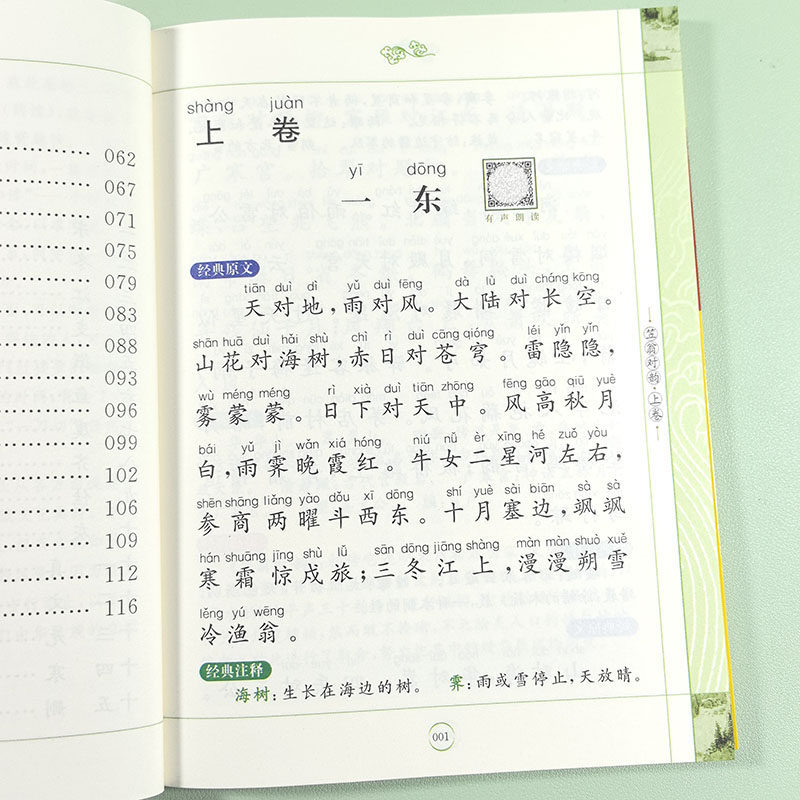 062
067
071
075
079
083
088
093
096
099
102
106
109
112
116
shàng juàn
上卷
yī dōng
一东
有声朗读
经典原文
tiān duì dì yǔ duì fēng dà lù duì cháng kōng
天对地，雨对风。大陆对长空。
shān huā duì hǎi shù chì rì duì cāng qióng léi yǐn yǐn
山花对海树，赤日对苍穹。雷隐隐，
wù méng méng rì xià duì tiān zhōng fēng gāo qiū yuè
雾蒙蒙。日下对天中。风高秋月
bái yǔ jì wǎn xiá hóng niú nǚ èr xīng hé zuǒ yòu
白，雨霁晚霞红。牛女二星河左右，
shēn shāng liǎng yào dǒu xī dōng shí yuè sài biān sà sà
参商两曜斗西东。十月塞边，飒飒
hán shuāng jīng shù lǚ sān dōng jiāng shàng màn màn shuò xuě
寒霜惊戍旅；三冬江上，漫漫朔雪
lěng yú wēng
冷渔翁。
经典注释
海树：生长在海边的树。 霁：雨或雪停止，天放晴。
001
笠翁对韵·上卷